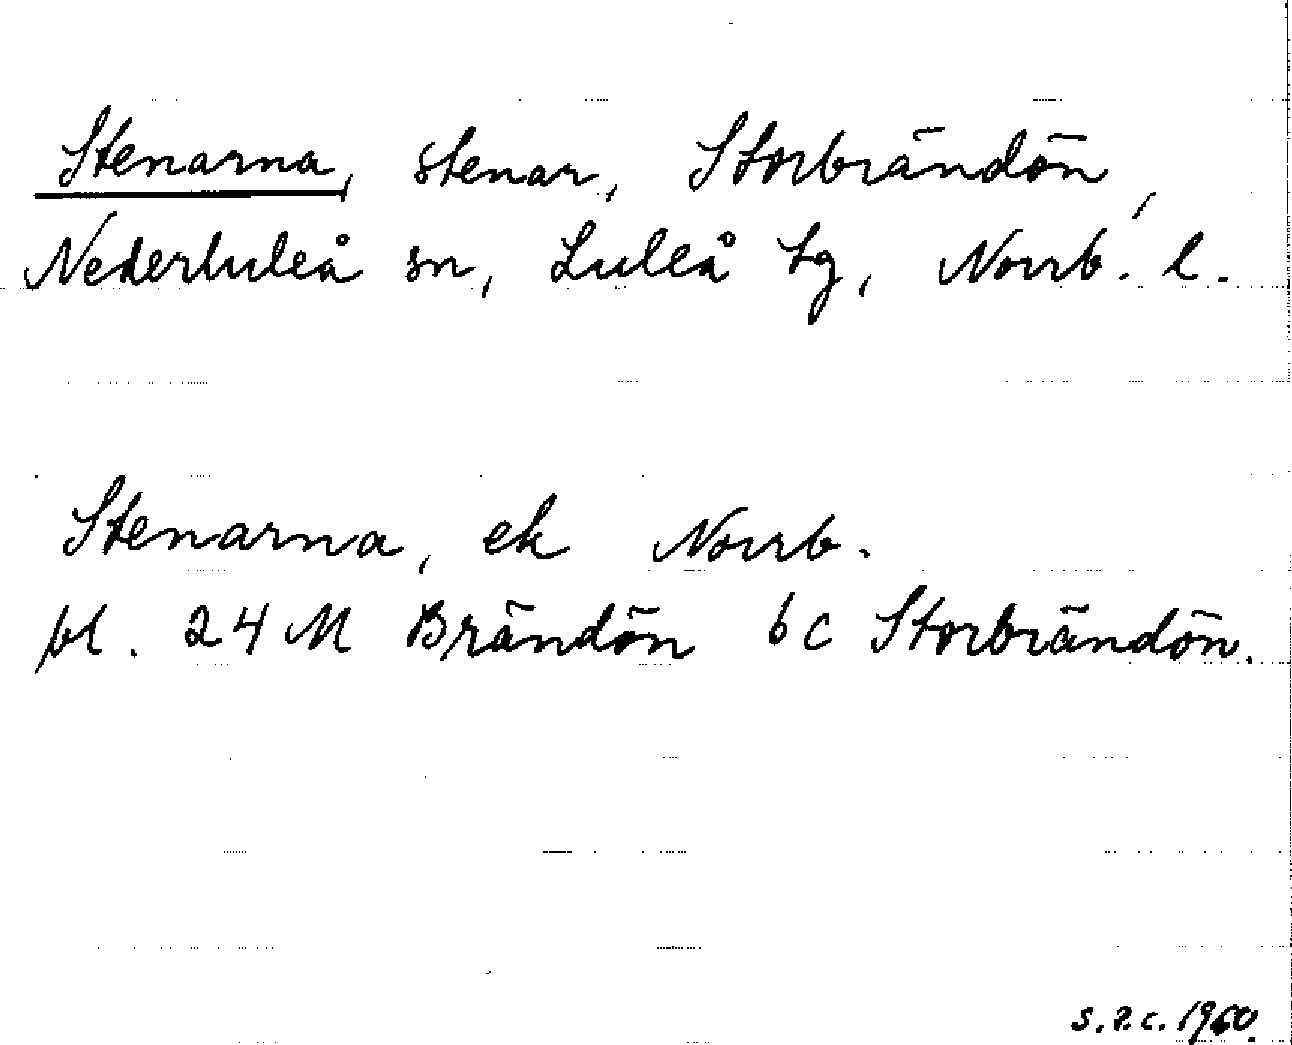 Stenarna, stenar, Storbrändön,
Nederluleå sn, Luleå tg, Norrb. l.
Stenarna, ek Norrb.
bl. 24 M Brändön 6c Storbrändön.
1960.